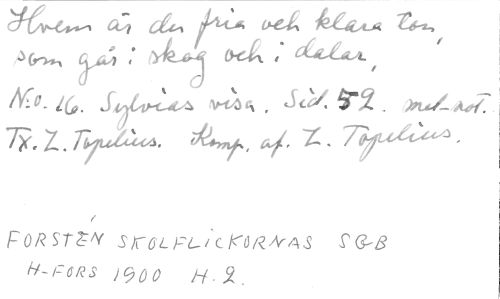 Hvem är du fria och klara ton,
som går i skog och i dalar,
N:o. 16. Sylvias visa. Sid. 52. mel-not.
Tx. Z. Topelius. Komp. af. Z. Topelius.
FORSTÉN SKOLFLICKORNAS SGB
H-FORS 1900 H.2.